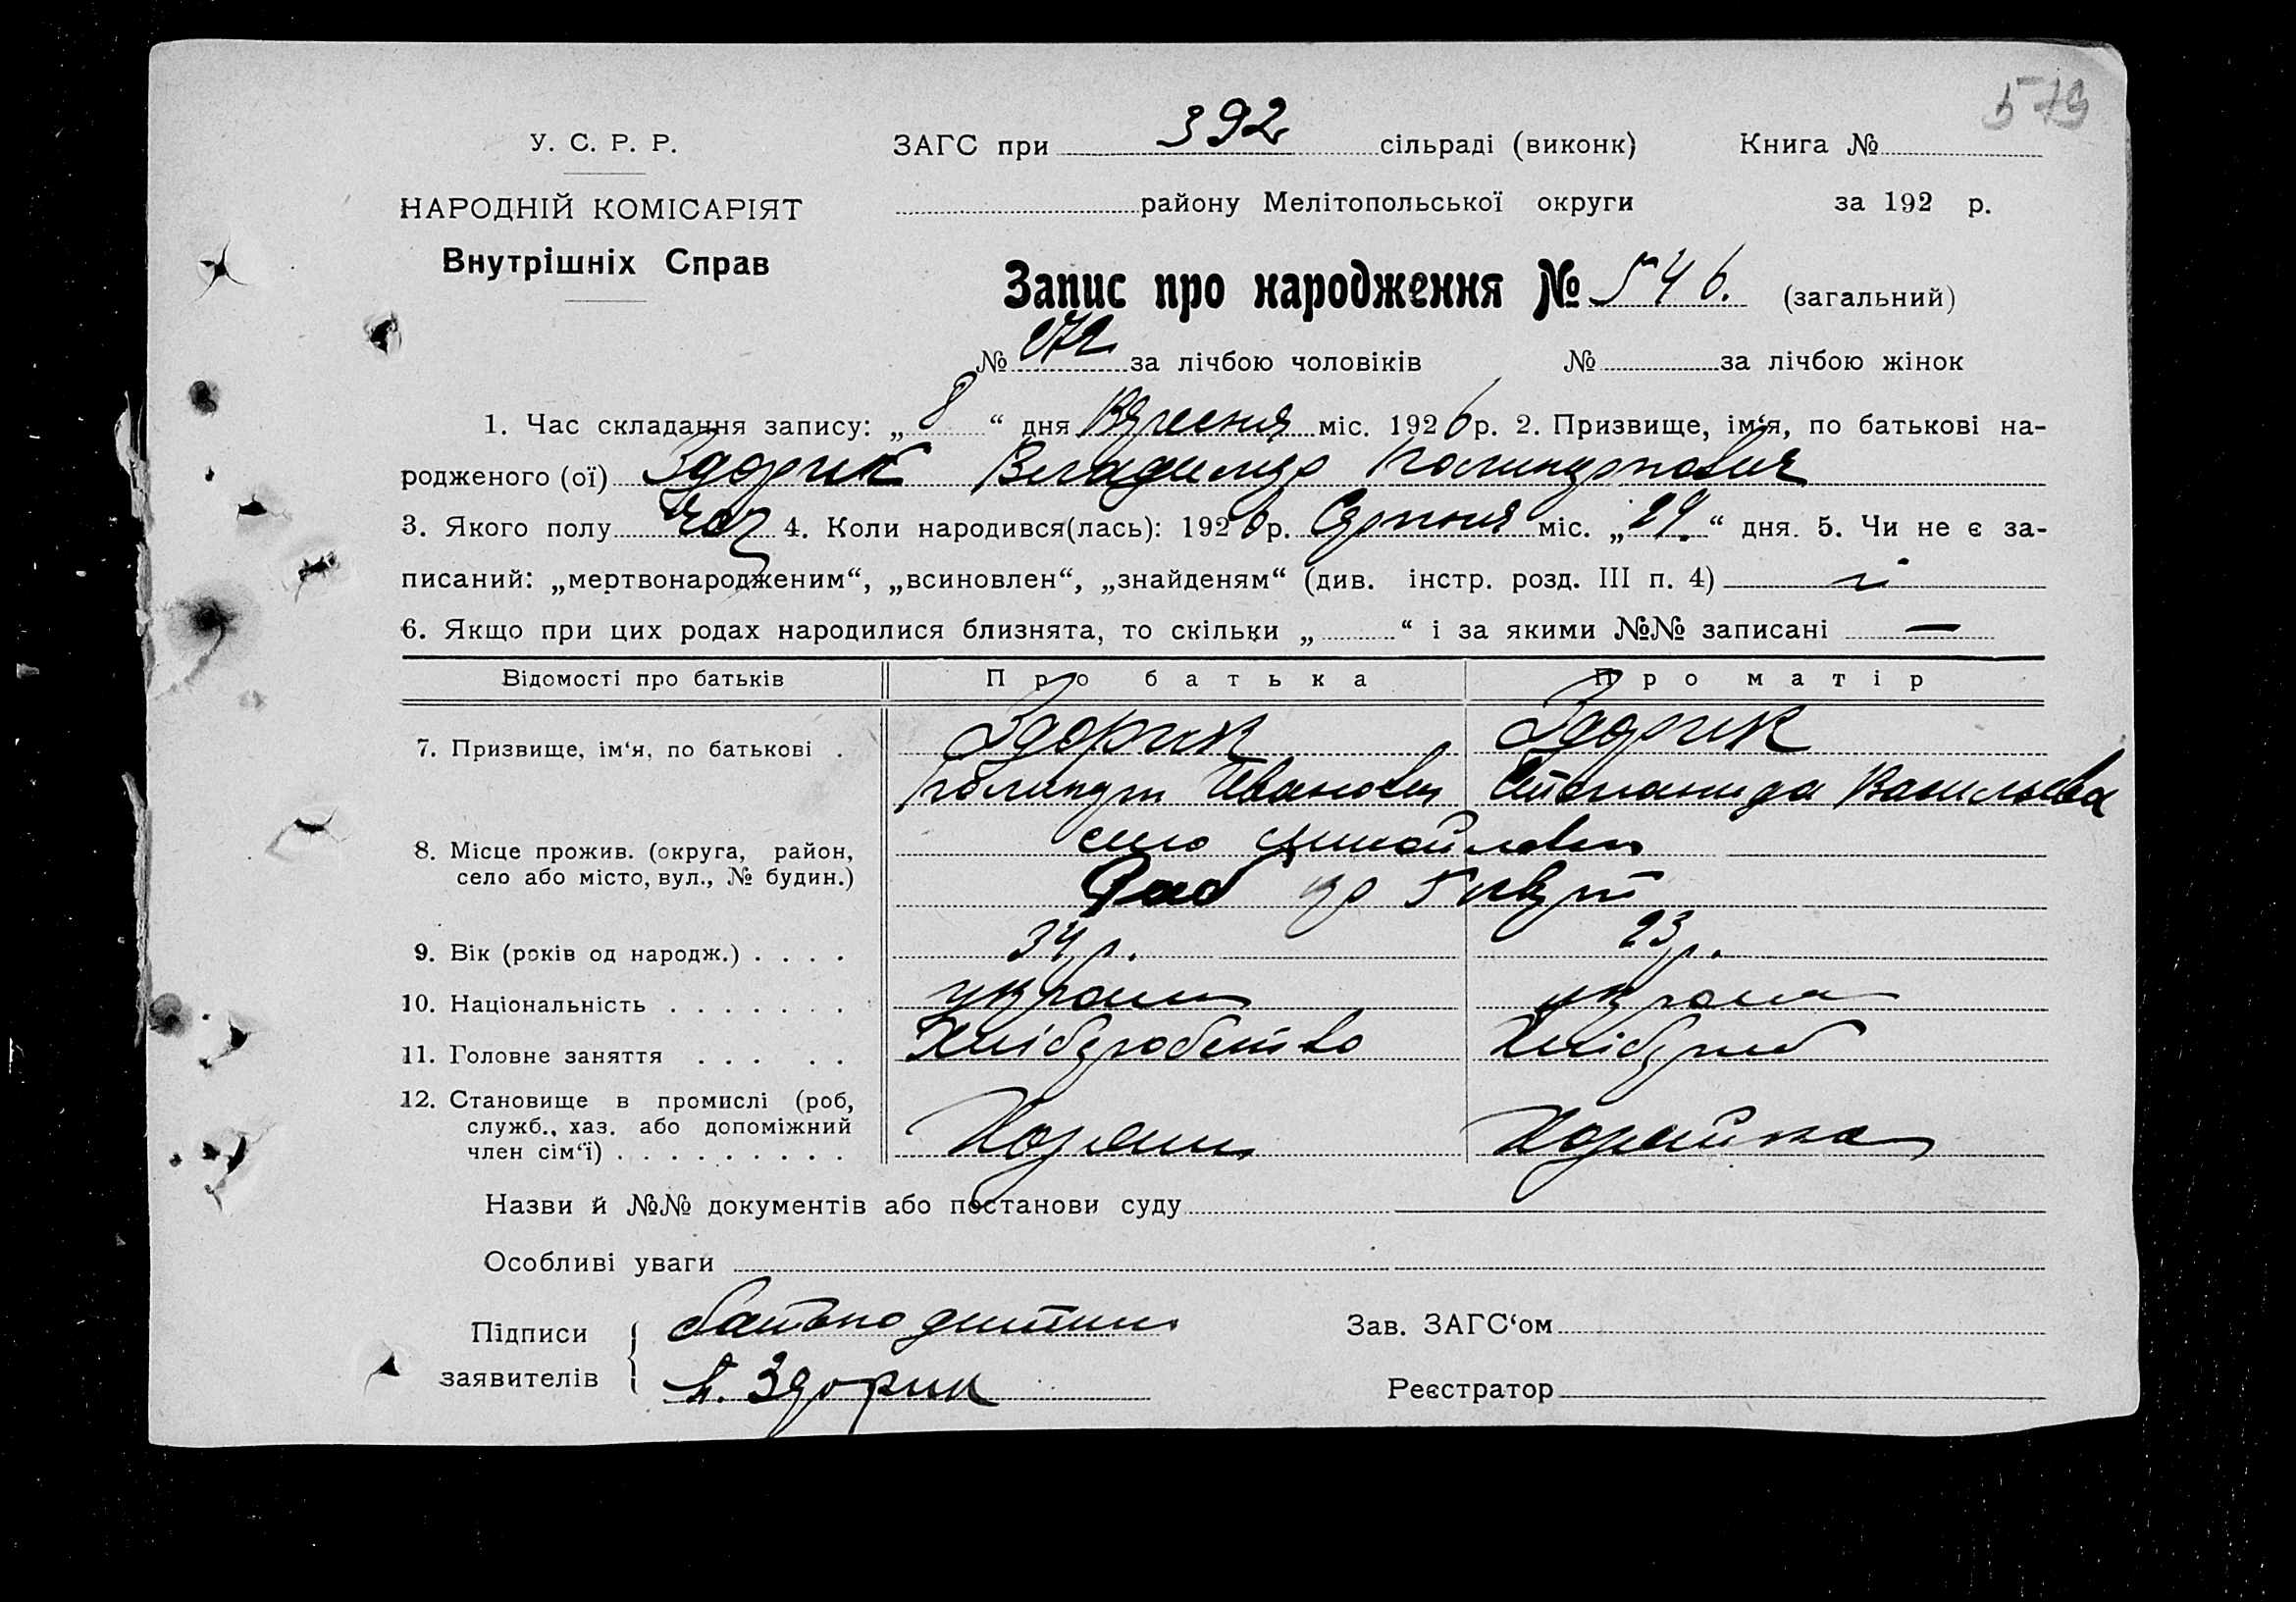 579
У. С. Р. Р.
ЗАГС при 392 сільраді (виконк) Книга №
НАРОДНІЙ КОМІСАРІЯТ
району Мелітопольської округи за 192 р.
Внутрішніх Справ
Запис про народження № 546. (загальний)
№ 272 за лічбою чоловіків № за лічбою жінок
1. Час складання запису: „ 8 “ дня Вересня міс. 1926 р. 2. Призвище, ім‘я, по батькові на-
родженого (ої) Здорик Владимир
3. Якого полу чол 4. Коли народився(лась): 1926 р. Серпня міс. „ 29. “ дня. 5. Чи не є за-
писаний: „мертвонародженим“, „всиновлен“, „знайденям“ (див. інстр. розд. III п. 4)
6. Якщо при цих родах народилися близнята, то скільки „ “ і за якими №№ записані —
Відомості про батьків Про батька Про матір
7. Призвище, ім‘я, по батькові . Здорик Здорик
Иванович Степанида Васильевна
8. Місце прожив. (округа, район, село
село або місто, вул., № будин.)
9. Вік (років од народж.) . . . . 34 р. 23 р.
10. Національність . . . . . . .
11. Головне заняття . . . . . Хліборобство Хлібороб
12. Становище в промислі (роб,
служб., хаз. або допоміжний
член сім‘ї) . . . . . . . . . Хозяин Хозяйка
Назви й №№ документів або постанови суду
Особливі уваги
Підписи батько дитини Зав. ЗАГС‘ом
заявителів Здорик Реєстратор